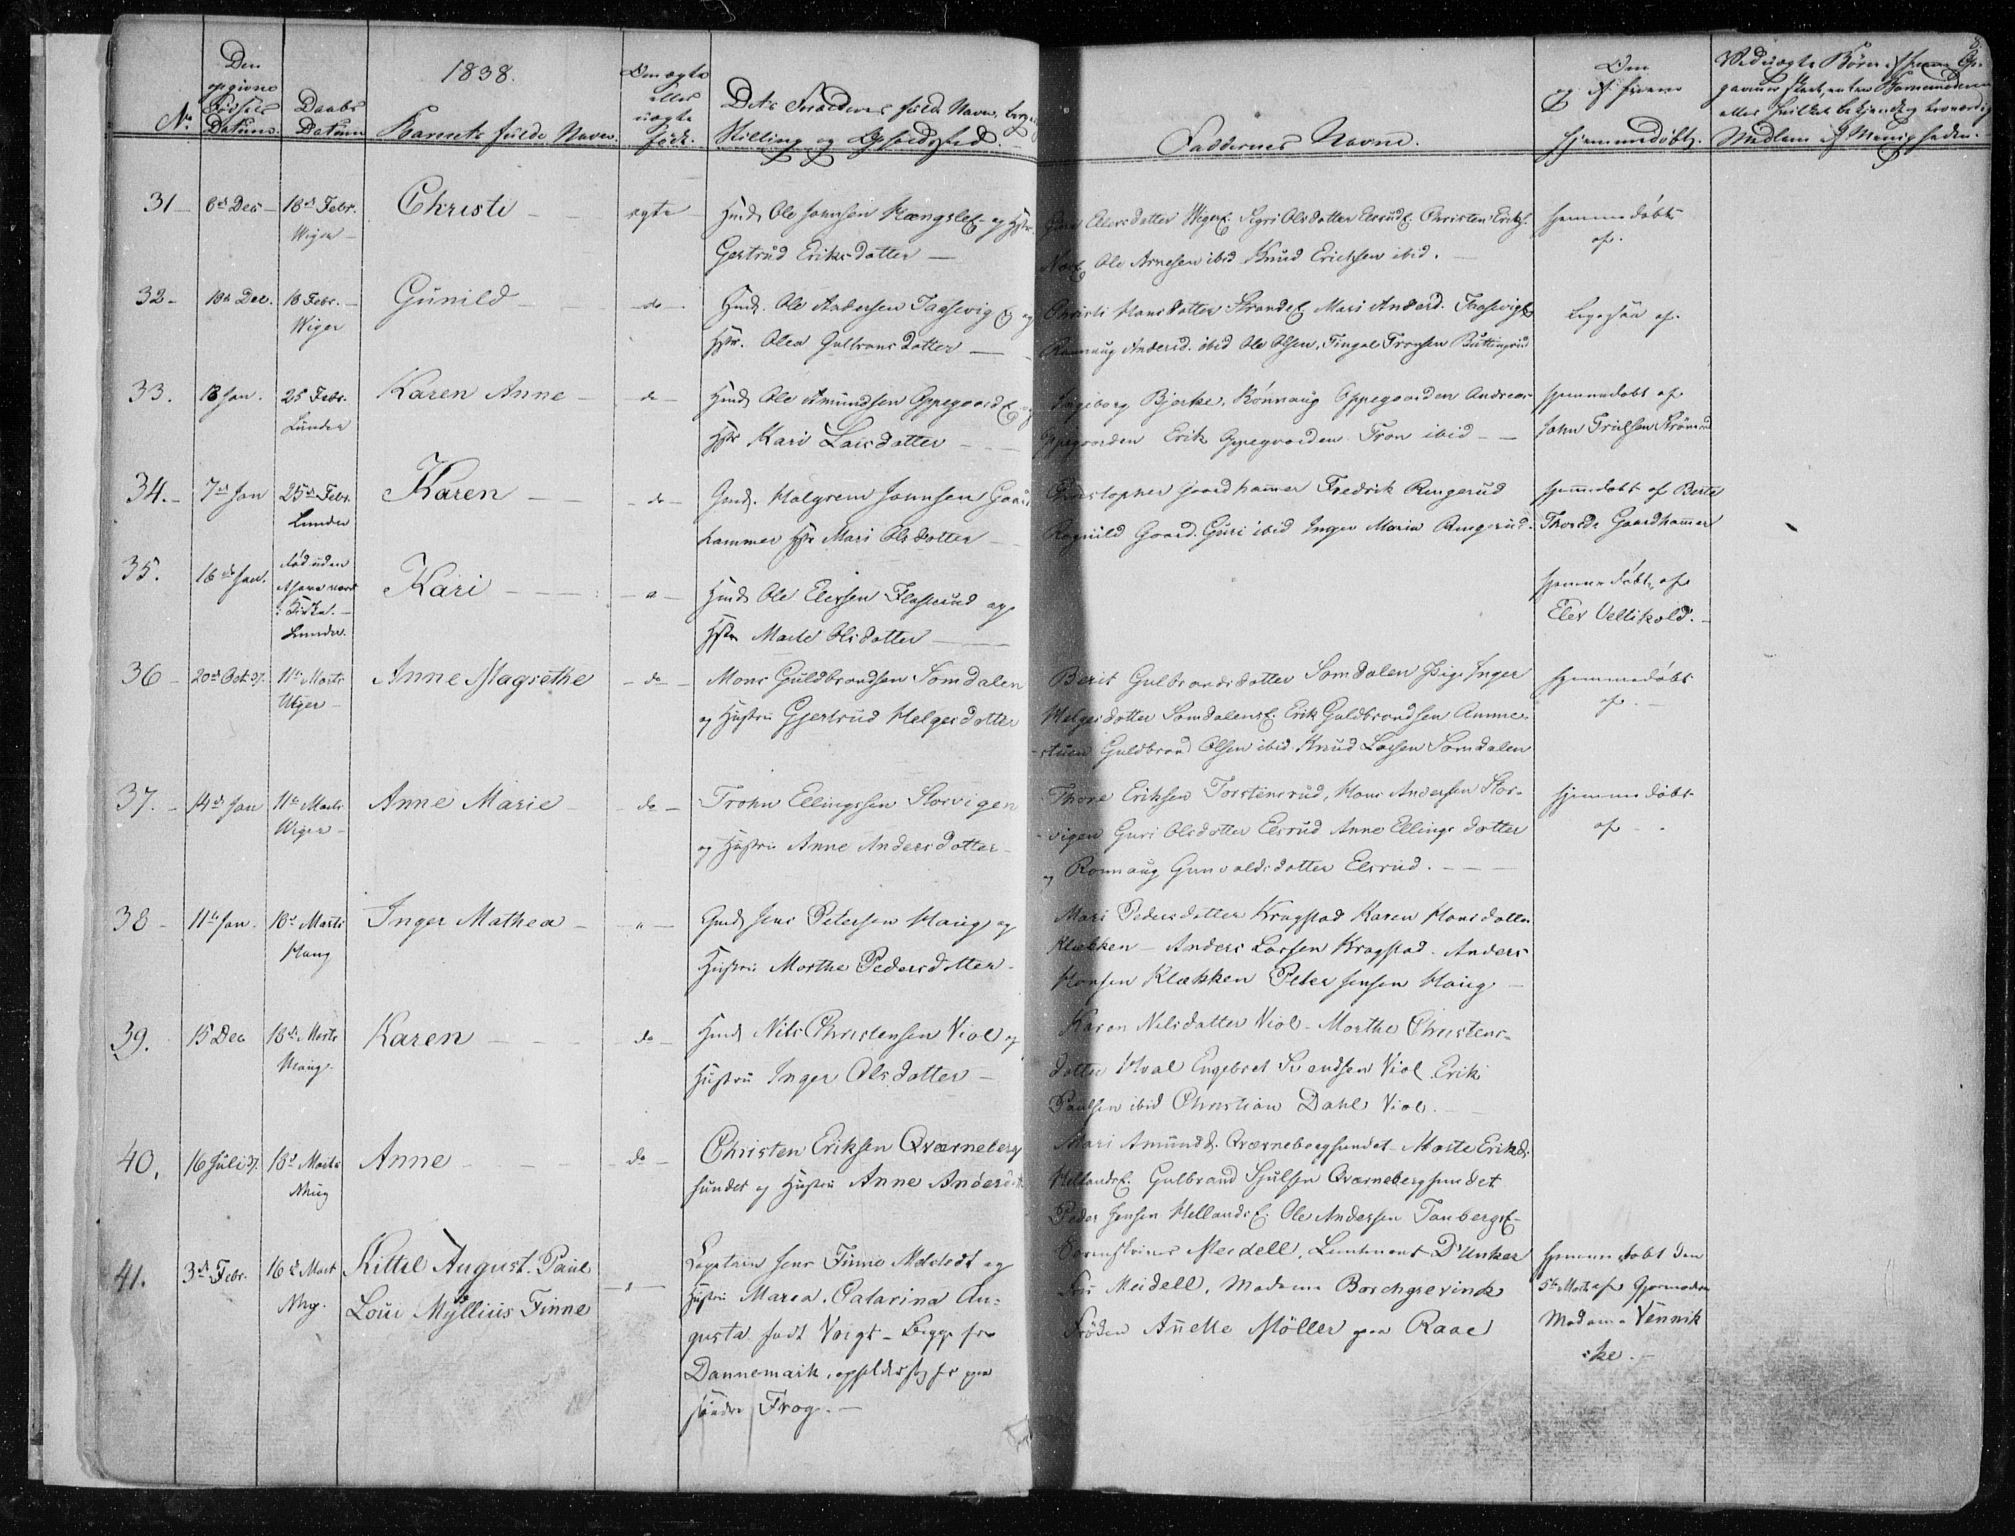 1838.
No
Den
opgivne
Fødsels
Datum.
Daabs
Datum
Barnets fulde Navn.
Om ægte
eller
uægte
født.
Dets Forældres fulde Navn,
Stilling og Opholdsted.
Faddernes Navne.
Om
og af hvem
hjemmedøbt.
8.
31 - 6te Dec - 18de Febr. Christi - ægte - Hmd. Ole Johnsen og Hstr.
Wiger -
Gertrud Eriksdatter -
Sigri Olsdatter ElsrudE. Christen Eriks.
Ole Arnesen ibid Knud Erichsen ibid. -
hjemmedøbt
af.
32 - 18de Dec. 18 Febr. - Gunild - do - Hmd. Ole Andersen og
Wiger
Hstr. Olea Gulbransdatter -
Christi Hansdatter StrandeE. Mari Andersd.
Rønnaug Andersd. ibid Ole Olsen,
Ligesaa af.
33. 18 Jan. 25 Febr. Karen Anne - do - Hmd. Ole Amundsen OppegaardE. og
Lunder
Hstr Kari Larsdatter -
Ingeborg Bjerke, Rønnaug Oppegaarden Andreas
Oppegaarden Erik Oppegaarden Tron ibid -
hjemmedøbt af
John
34. - 7de Jan 25de Febr. Karen - do - Gmd. Halgrim Johnsen Gaard-
Lunder
hammer Hstr Mari Olsdatter -
Christopher Gaardhamer Fredrik Ringerud
Ragnild Gaard. Guri ibid Inger Maria Ringerud.
hjemmedøbt af Berte
Thorsd. Gaardhammer
35. 16de Jan. Kari - do - Hmd. Ole Elersen og
Kirke. -
Lunder.
Hstr Marte Olsdatter -
hjemmedøbt af
Eler Veltikold. -
36 - 20de Oct. 37. 11te Marts Anne Magrethe - do - Mons Guldbrandsen Somdalen
Wiger -
og Hustru Gjertrud Helgesdatter
Berit Gulbrandsdatter Somdalen Pige Inger
Helgesdatter SomdalensE. Erik Guldbrandsen Amme-
stuen Guldbrand Olsen ibid Knud Larsen Somdalen
hjemmedøbt
af. -
37. - 14de Jan 11te Marts Anne Marie - do - Trohn Ellingssen Storvigen
Wiger -
og Hustru Anne Andersdatter -
Thore Eriksen Torstensrud, Hans Andersen Stor-
vigen Guri Olsdatter Elsrud Anne Ellingsdatter
og Rønnaug Gunvoldsdatter Elsrud. -
hjemmedøbt
af -
38 - 11te Jan. 18de Marts Inger Mathea - do - Gmd. Jens Petersen Haug og
Haug
Hustru Marthe Pedersdatter -
Mari Pedersdatter Kragstad Karen Hansdatter
Klækken - Anders Larsen Kragstad. Anders
Hansen Klækken Peter Jensen Haug -
39. 15 Dec 18de Marts Karen - do - Hmd. Nils Christensen Viol og
Haug.
Hustru Inger Olsdatter -
Karen Nilsdatter Viol - Marthe Christens-
datter Hval Engebret Svendsen Viol Erik
Paulsen ibid Christian Dahl Viol.
40. 16 Juli 37. 18de Marts Anne - do - Christen Eriksen Qværneberg
Haug
sundet og Hustru Anne Andersdt.
Mari Amundsd. Qværnebergsundet - Marte Eriksd.
HellandsE. Gulbrand Sjulsen Qværnebergsundet
Peder Jensen HellandsE. Ole Andersen TanbergsE -
41. 3de Febr. 16de Mart Kittel August Paul
Nhg.
Loui Myllius Finne
Captain Jens Finne og
Hustru Maren Catarina Au-
gusta født Voigt - Begge fra
Dannemark, opholder sig her paa
søndre Frog. -
Meidell, Lieutenant D'Unker
Fru Meidell, Madame Borchgrevink
Frøken Anette Møller paa Raae
hjemmedøbt den
5te Marts af Gjormoder
Madame Vennik
ske. -